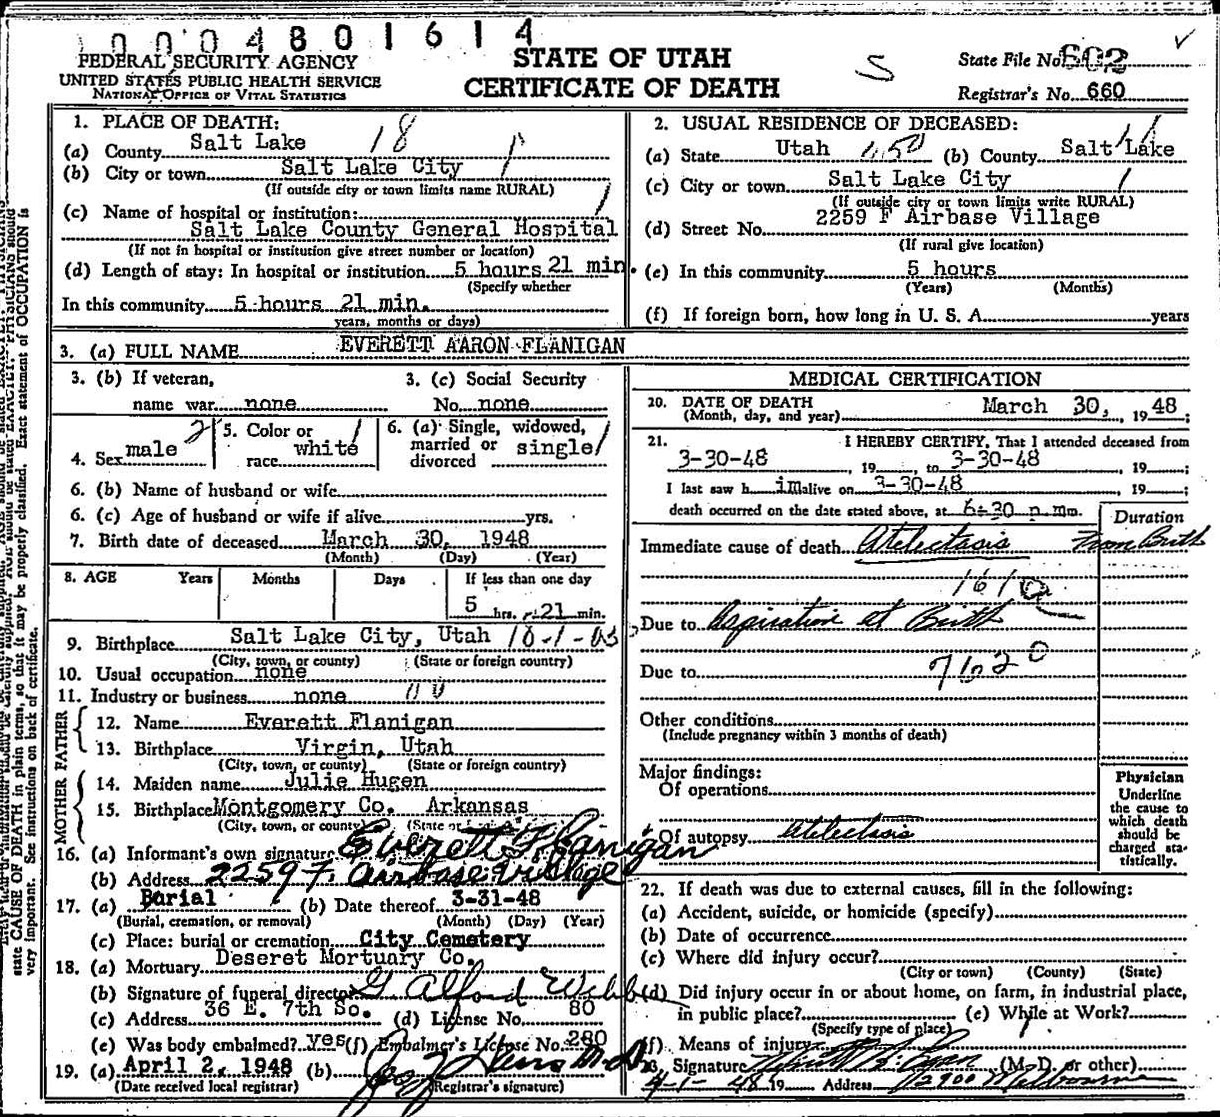 0 0 0 4 8 0 1 6 1 4
FEDERAL SECURITY AGENCY
UNITED STATES PUBLIC HEALTH SERVICE
NATIONAL OFFICE OF VITAL STATISTICS
STATE OF UTAH
CERTIFICATE OF DEATH
S
State File No. 602
Registrar's No. 660
1. PLACE OF DEATH:
(a) County Salt Lake 18
(b) City or town Salt Lake City 1
(If outside city or town limits name RURAL)
(c) Name of hospital or institution: 1
Salt Lake County General Hospital
(If not in hospital or institution give street number or location)
(d) Length of stay: In hospital or institution 5 hours 21 min.
(Specify whether
In this community 5 hours 21 min.
years, months or days)
2. USUAL RESIDENCE OF DECEASED:
(a) State Utah (b) County Salt Lake
(c) City or town Salt Lake City 1
(If outside city or town limits write RURAL)
(d) Street No. 2259 F Airbase Village
(If rural give location)
(e) In this community 5 hours
(Years) (Months)
(f) If foreign born, how long in U. S. A. years
3. (a) FULL NAME EVERETT AARON FLANIGAN
3. (b) If veteran, name war none
3. (c) Social Security No. none
4. Sex male 2
5. Color or race white 1
6. (a) Single, widowed, married or divorced single 1
6. (b) Name of husband or wife
6. (c) Age of husband or wife if alive yrs.
7. Birth date of deceased March 30, 1948
(Month) (Day) (Year)
8. AGE Years Months Days If less than one day
5 hrs. 21 min.
9. Birthplace Salt Lake City, Utah
(City, town, or county) (State or foreign country)
10. Usual occupation none
11. Industry or business none
FATHER
12. Name Everett Flanigan
13. Birthplace Virgin, Utah
(City, town, or county) (State or foreign country)
MOTHER
14. Maiden name Julie Hugen
15. Birthplace Montgomery Co. Arkansas
(City, town, or county) (State or
16. (a) Informant's own signature Everett Flanigan
(b) Address 2259 F. Airbase Village
17. (a) Burial (b) Date thereof 3-31-48
(Burial, cremation, or removal) (Month) (Day) (Year)
(c) Place: burial or cremation City Cemetery
18. (a) Mortuary Deseret Mortuary Co.
(b) Signature of funeral director G Alford
(c) Address 36 E. 7th So. (d) License No. 80
(e) Was body embalmed? yes (f) Embalmer's License No. 280
19. (a) April 2, 1948 (b)
(Date received local registrar) (Registrar's signature)
MEDICAL CERTIFICATION
20. DATE OF DEATH
(Month, day, and year) March 30, 19 48;
21. I HEREBY CERTIFY, That I attended deceased from
3-30-48, 19 , to 3-30-48, 19 ;
I last saw h im alive on 3-30-48, 19 ;
death occurred on the date stated above, at 6:30 p.m.
Duration
Immediate cause of death Atelectasis From Birth
Due to Aspiration at Birth
Due to
7620
Other conditions
(Include pregnancy within 3 months of death)
Major findings:
Of operations
Of autopsy Atelectasis
Physician
Underline
the cause to
which death
should be
charged sta-
tistically.
22. If death was due to external causes, fill in the following:
(a) Accident, suicide, or homicide (specify)
(b) Date of occurrence
(c) Where did injury occur?
(City or town) (County) (State)
(d) Did injury occur in or about home, on farm, in industrial place,
in public place? (e) While at Work?
(Specify type of place)
(f) Means of injury
23. Signature (M. D. or other)
4-1-48 19 Address
state CAUSE OF DEATH in plain terms, so that it may be properly classified. Exact statement of OCCUPATION is
very important. See instructions on back of certificate.